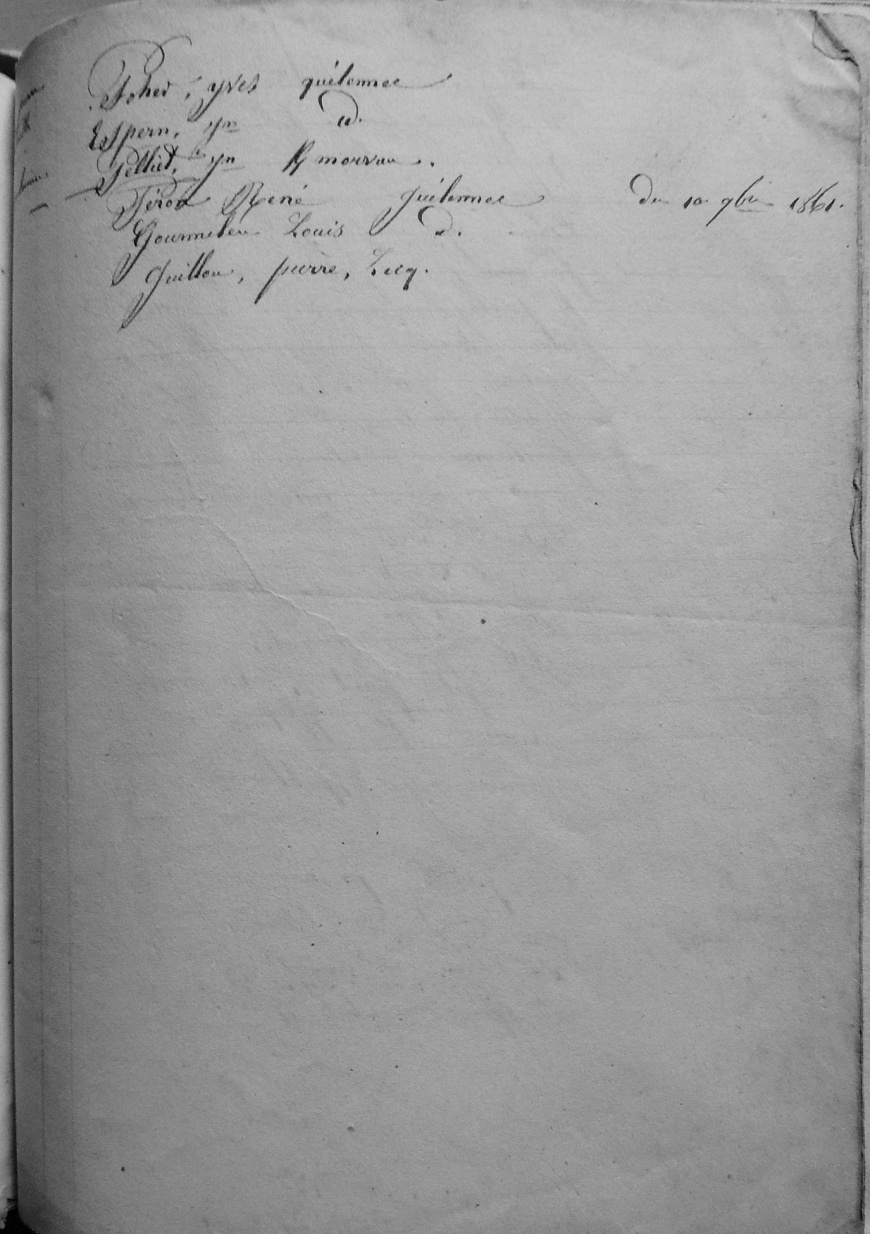 Poher, yves quélennec
Espern, yn d.
Pelliet, yn Kmorvan.
Péron René quélennec du 10 9bre 1861.
Gourmelen Louis d.
Guillou, pierre, Lecq.